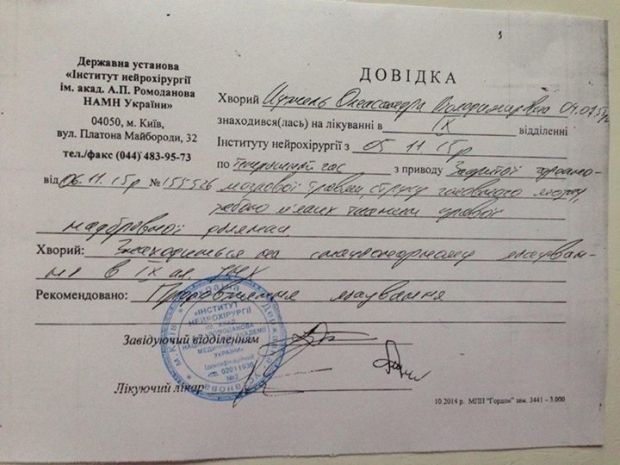 Державна установа
«Інститут нейрохірургії
ім. акад. А.П. Ромоданова
НАМН України»
04050, м. Київ,
вул. Платона Майбороди, 32
тел./факс (044) 483-95-73
від 06.11.15р № 155526
ДОВІДКА
Хворий Олександр Володимирович
знаходився(лась) на лікуванні в IX відділенні
Інституту нейрохірургії з 05 11 15р
по теперішній час з приводу Закритої черепно-
мозкової травми, струсу головного мозку,
забою м'яких тканин правої
надбрівної ділянки
Хворий: Знаходиться на стаціонарному лікуван-
ня в IX
Рекомендовано: лікування
«ІНСТИТУТ
НЕЙРОХІРУРГІЇ
УКРАЇНИ»
Завідуючий відділенням
Лікуючий лікар
10.2014 р. МПП "Гордон" зам. 3441 - 3.000